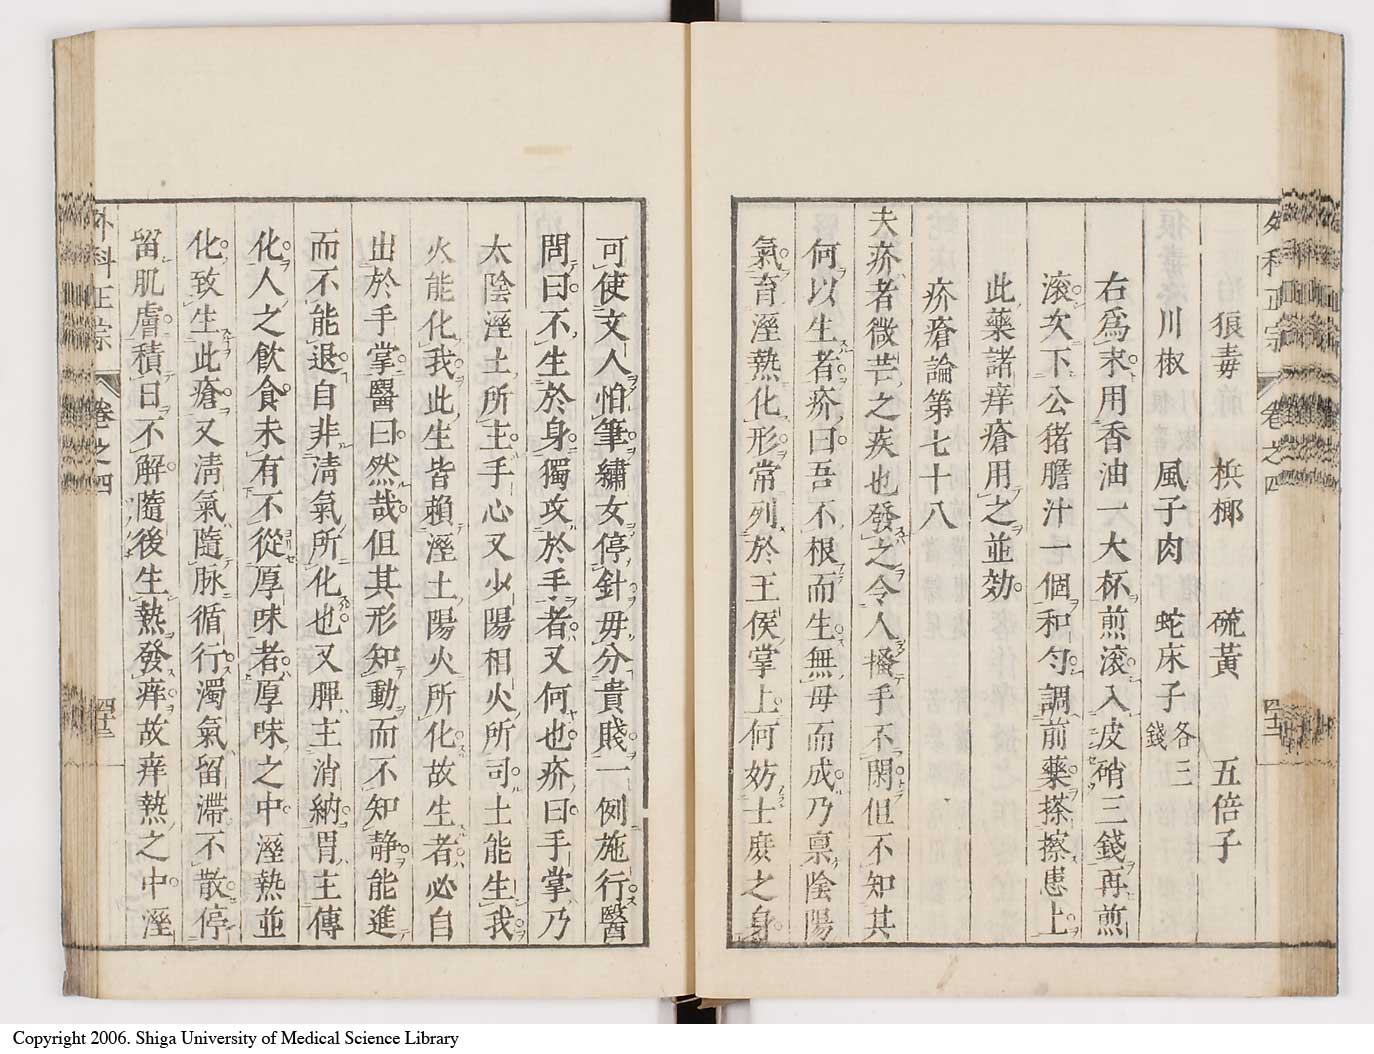 外科正宗 卷之四 四十二
狼毒 梹榔 硫黃 五倍子
川椒 風子肉 蛇床子 各三錢
右爲末用香油一大杯煎滚入皮硝三錢再煎
滚次下公猪膽汁一個和勻調前藥搽擦患上
此藥諸痒瘡用之並効
疥瘡論第七十八
夫疥者微芒之疾也發之令人搔手不閑但不知其
何以生者疥曰吾不根而生無毋而成乃禀陰陽
氣育溼熱化形常列於王侯掌上何妨士庶之身
可使文人怕筆繡女停針毋分貴賤一例施行醫
問曰不生於身獨攻於手者又何也疥曰手掌乃
太陰溼土所主手心又少陽相火所司土能生我
火能化我此生皆賴溼土陽火所化故生者必自
出於手掌醫曰然哉但其形知動而不知静能進
而不能退自非淸氣所化也又脾主消納胃主傳
化人之飲食未有不從厚味者厚味之中溼熱並
化致生此瘡又淸氣隨脉循行濁氣留滯不散停
留肌膚積日不解隨後生熱發痒故痒熱之中溼
外科正宗 卷之四
Copyright 2006. Shiga University of Medical Science Library